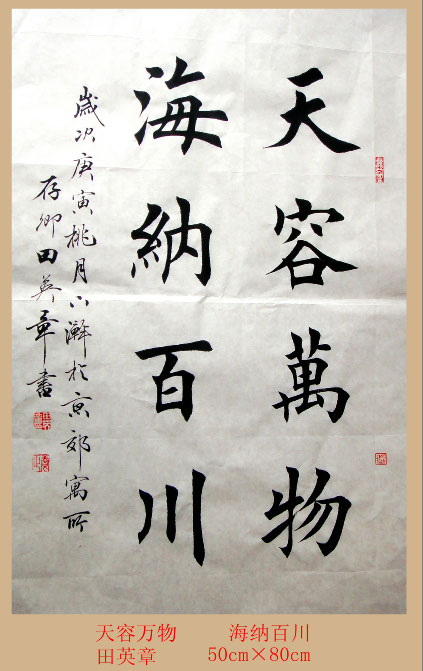 天容萬物
海納百川
歲次庚寅桃月下澣於京郊寓所
存卿田英章書
天容万物 海纳百川
田英章 50cm×80cm